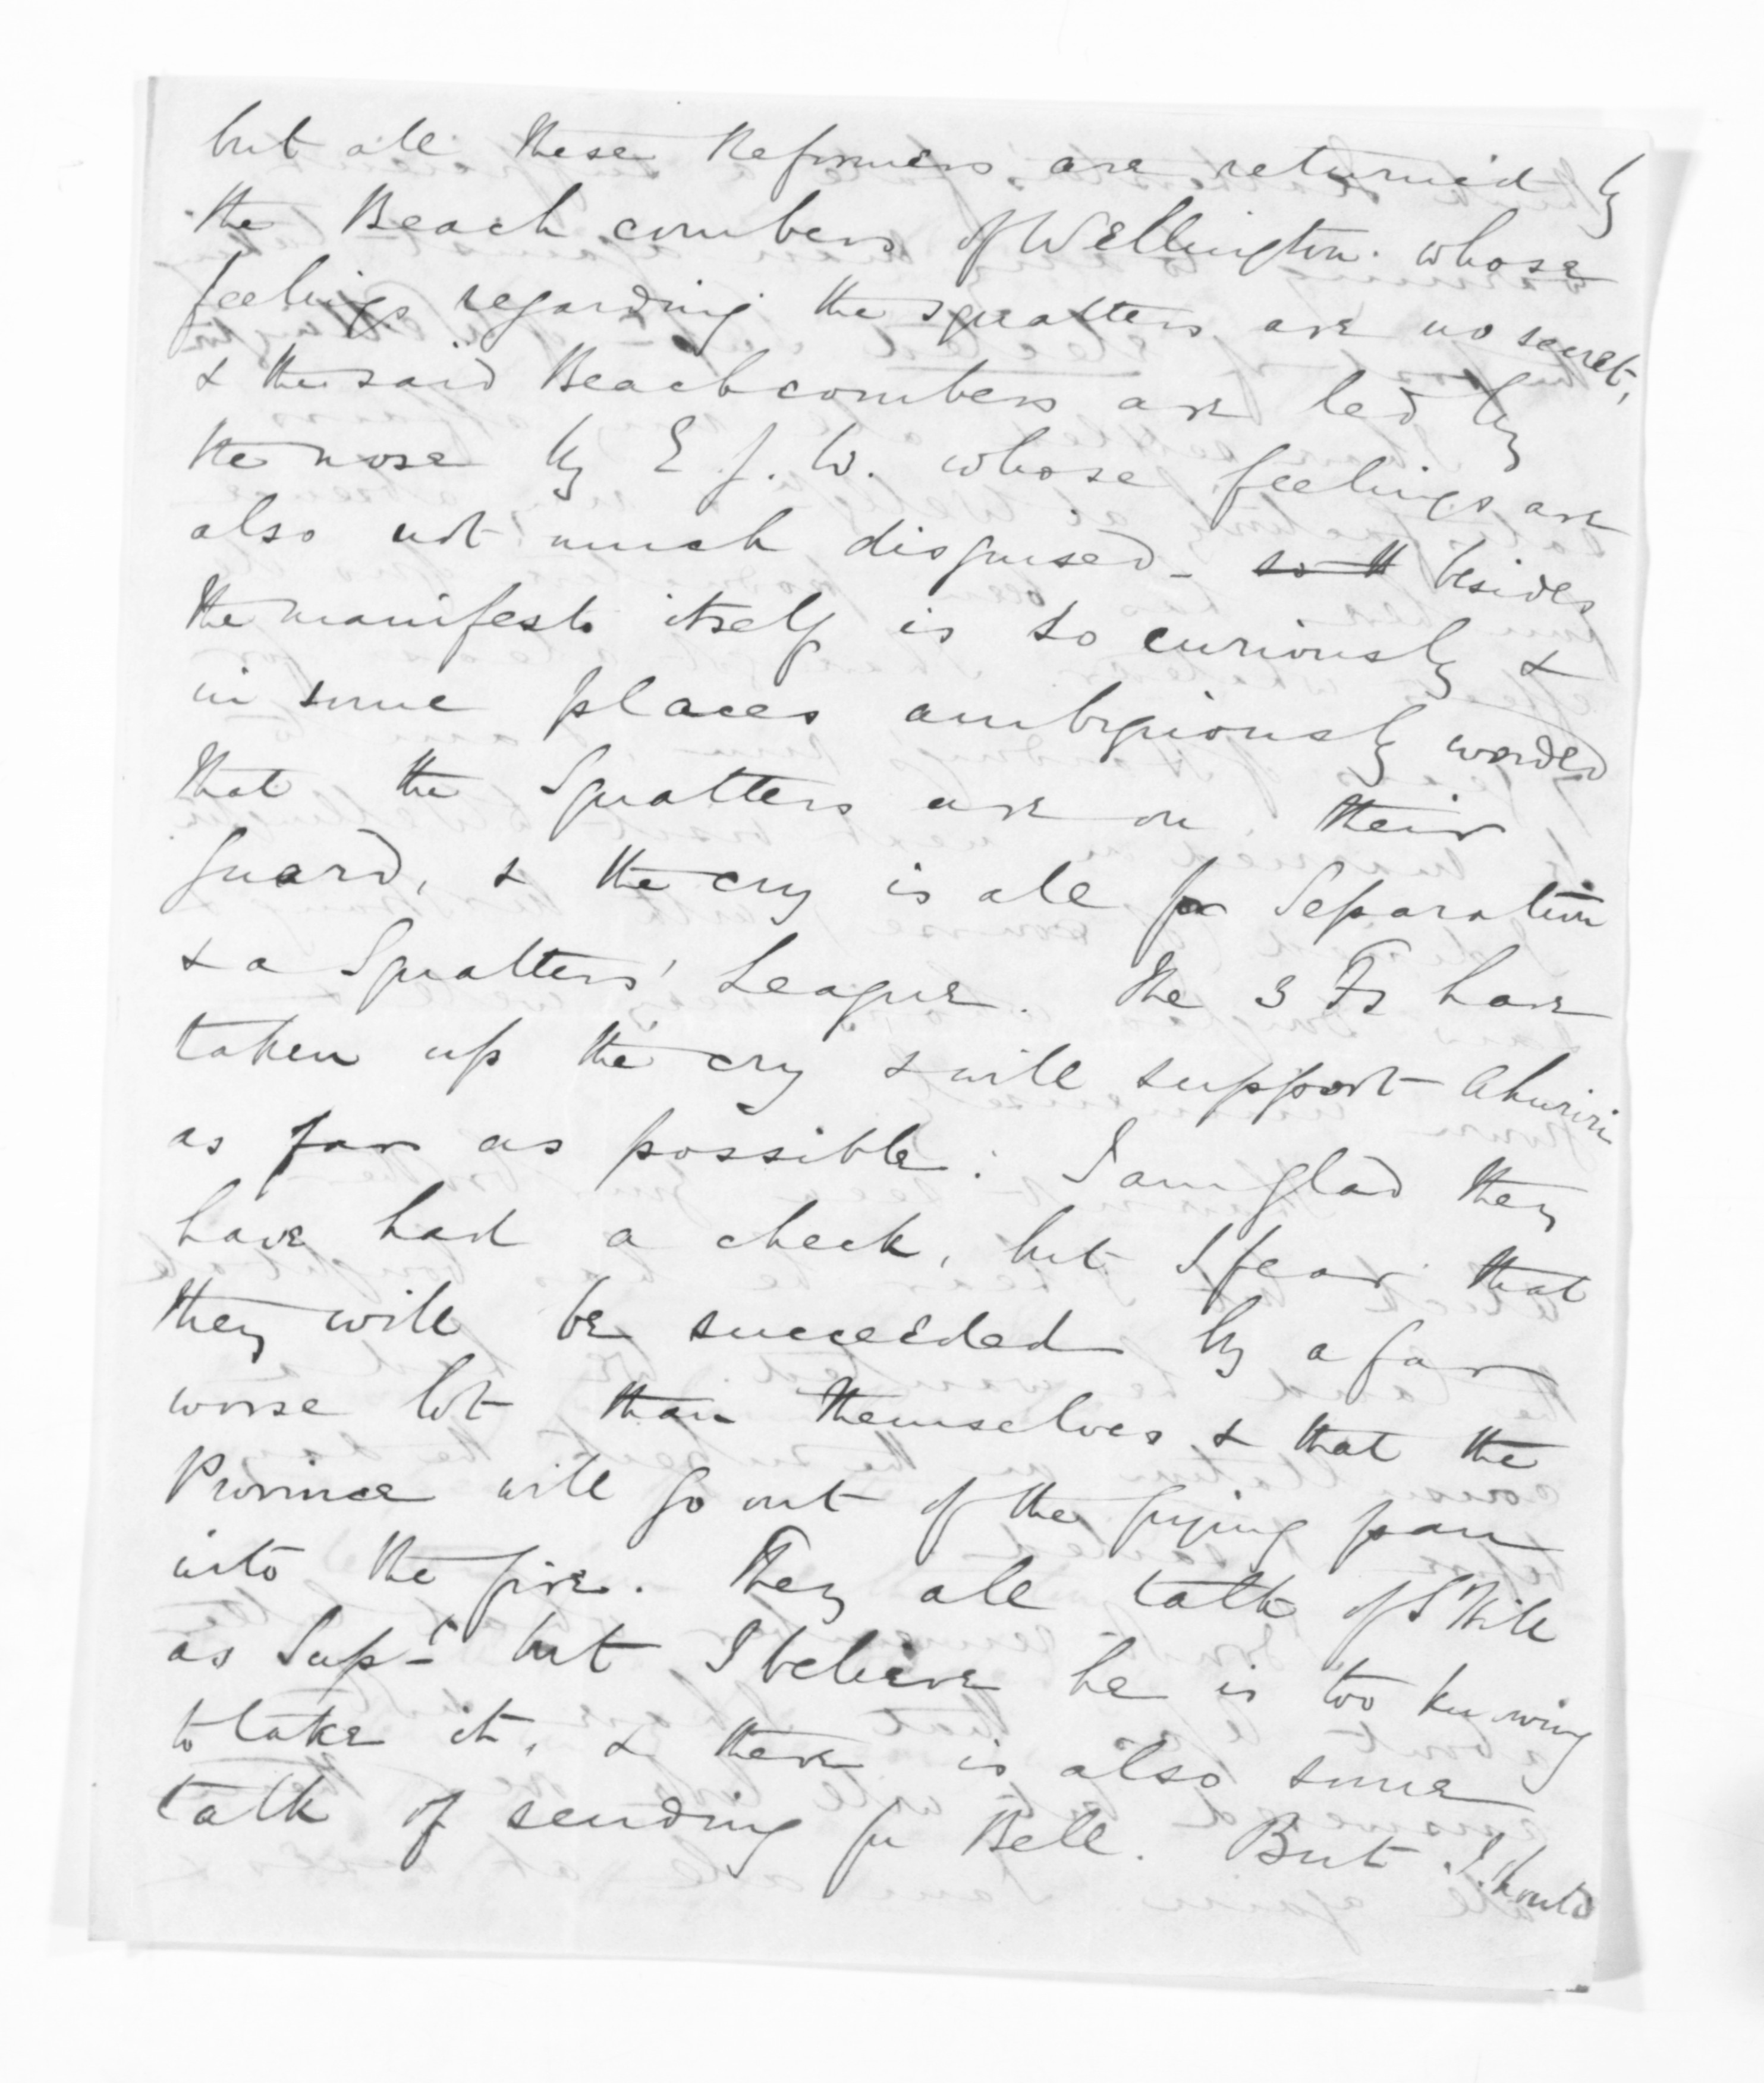 but all these Reformers are returned by
the Beach combers of Wellington. whose
feelings regarding the squatters are no secret,
& the said Beachcombers are led by
the nose by E. J. W. whose feelings are
also not much disguised - so th besides
the manifesto itself is so curiously &
in some places ambiguously worded
that the Squatters are on their
guard, & the cry is all for Separation
& a Squatters' League. The 3 Fs have
taken up the cry & will support Ahuriri
as far as possible. I am glad they
have had a check, but I fear that
they will be succeeded by a far
worse lot than themselves & that the
Province will go out of the frying pan
into the fire. They all talk of S Hill
as Supt but I believe he is too knowing
to take it, & there is also some
talk of sending for Bell. But I should